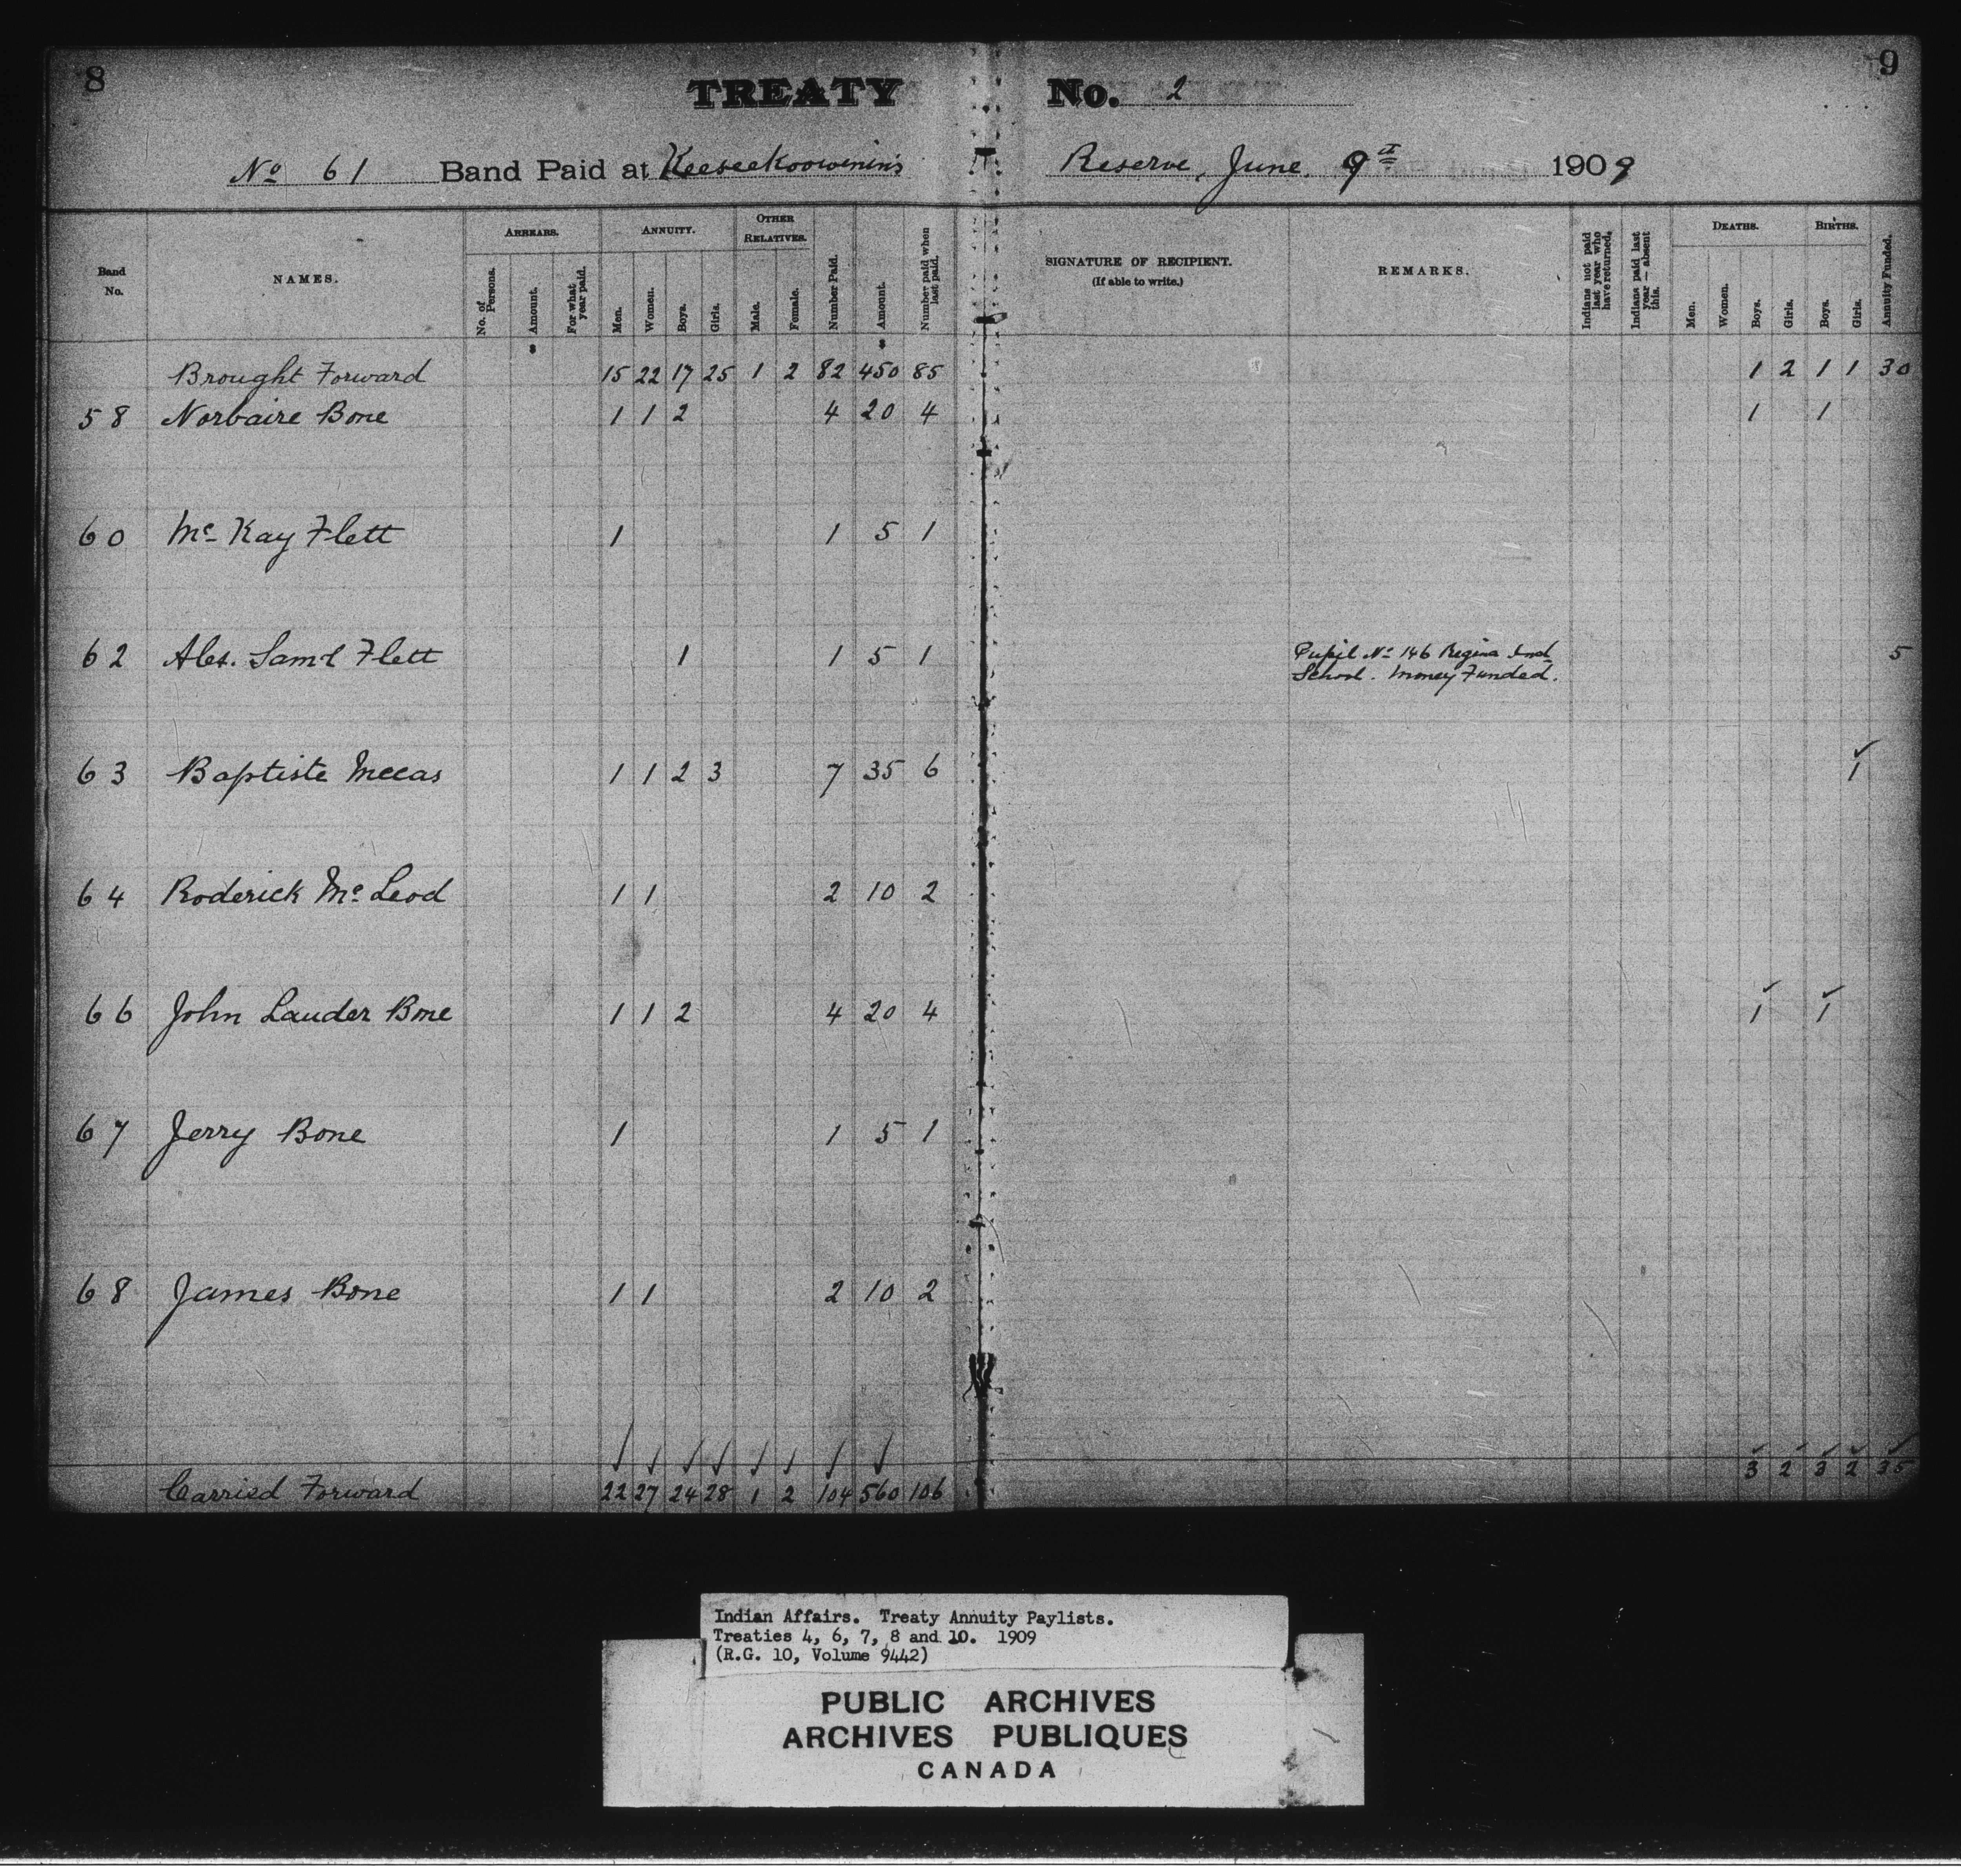 8 TREATY No. 2 9
No 61 Band Paid at Keeseekoowenin's Reserve, June 9th 1909
Band No.
NAMES.
ARREARS.
No. of Persons.
Amount.
For what year paid.
ANNUITY.
Men.
Women.
Boys.
Girls.
OTHER RELATIVES.
Male.
Female.
Number Paid.
Amount.
Number paid when last paid.
SIGNATURE OF RECIPIENT.
(If able to write.)
REMARKS.
Indians not paid last year who have returned.
Indians paid last year — absent this.
DEATHS.
Men.
Women.
Boys.
Girls.
BIRTHS.
Boys.
Girls.
Annuity Funded.
Brought Forward 15 22 17 25 1 2 82 450 85 1 2 1 1 30
58 Norbaire Bone 1 1 2 4 20 4 1 1
60 Mc Kay Flett 1 1 5 1
62 Alex. Saml Flett 1 1 5 1 Pupil No 146 Regina Ind 5
School. Money Funded.
63 Baptiste Mecas 1 1 2 3 7 35 6 1
64 Roderick Mc Leod 1 1 2 10 2
66 John Lauder Bone 1 1 2 4 20 4 1 1
67 Jerry Bone 1 1 5 1
68 James Bone 1 1 2 10 2
Carried Forward 22 27 24 28 1 2 104 560 106 3 2 3 2 35
Indian Affairs. Treaty Annuity Paylists.
Treaties 4, 6, 7, 8 and 10. 1909
(R.G. 10, Volume 9442)
PUBLIC ARCHIVES
ARCHIVES PUBLIQUES
CANADA